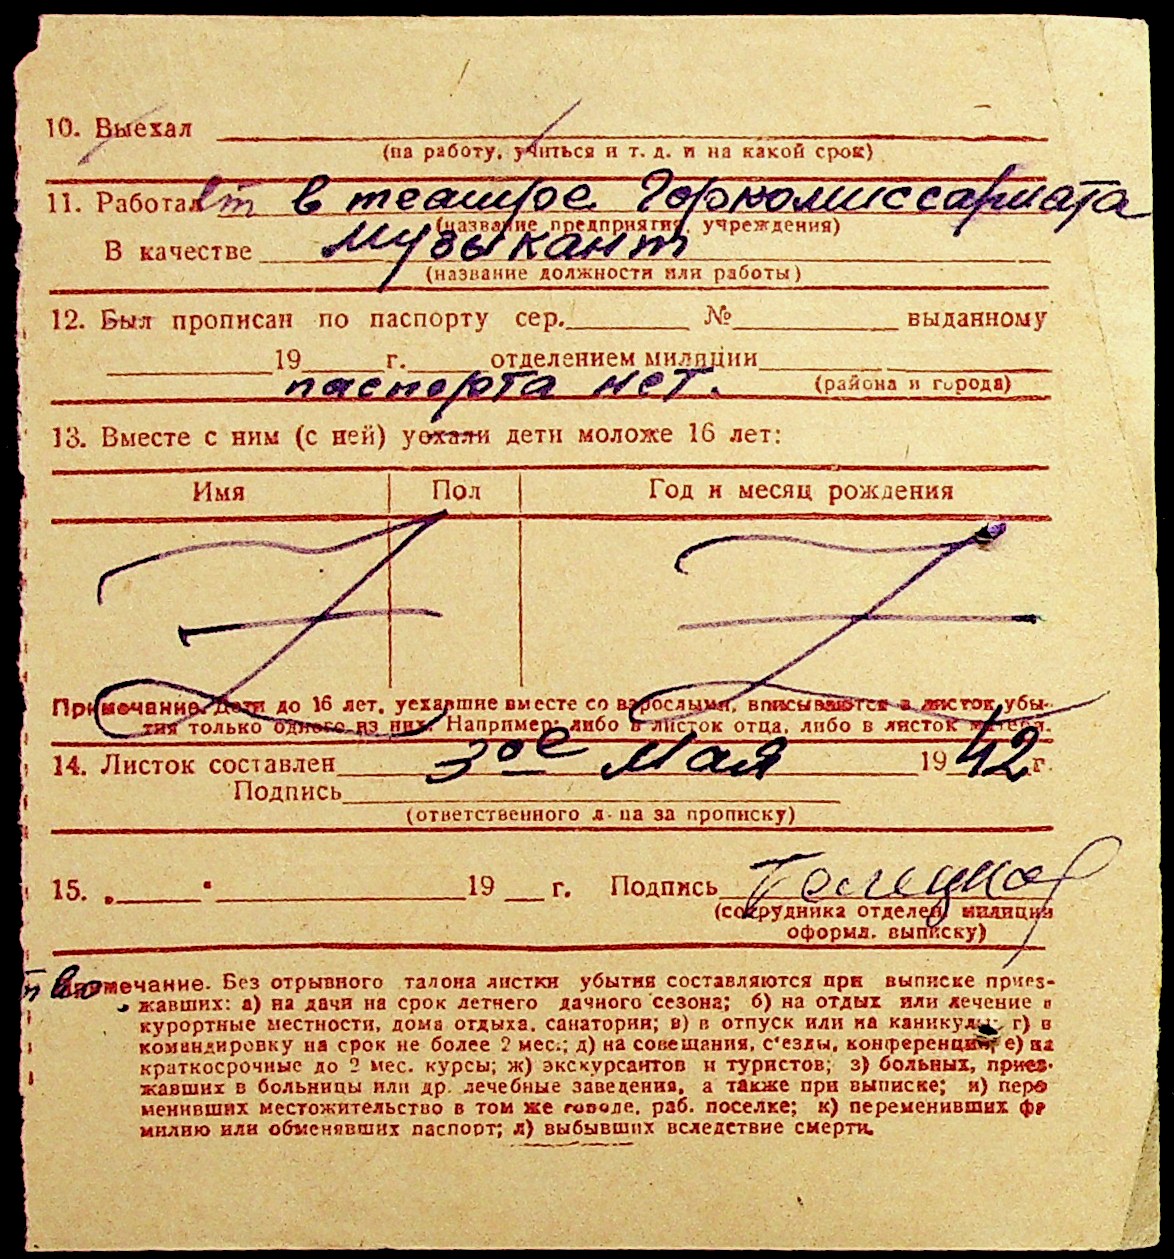 10. Выехал
(на работу, учиться и т. д. и на какой срок)
11. Работает в театре Горкомиссариата
(название предприятия, учреждения)
В качестве музыкант
(название должности или работы)
12. Был прописан по паспорту сер. № выданному
19 г. отделением милиции
паспорта нет. (района и города)
13. Вместе с ним (с ней) уехали дети моложе 16 лет:
Имя Пол Год и месяц рождения
Примечание. Дети до 16 лет, уехавшие вместе со взрослыми, вписываются в листок убы-
тия только одного из них. Например: либо в листок отца, либо в листок матери.
14. Листок составлен 3ое мая 1942 г.
Подпись
(ответственного лица за прописку)
15. „ " 19 г. Подпись
(сотрудника отделен. милиции
оформл. выписку)
Примечание. Без отрывного талона листки убытия составляются при выписке приез-
жавших: а) на дачи на срок летнего дачного сезона; б) на отдых или лечение в
курортные местности, дома отдыха, санатории; в) в отпуск или на каникулы; г) в
командировку на срок не более 2 мес.; д) на совещания, с'езды, конференции; е) на
краткосрочные до 2 мес. курсы; ж) экскурсантов и туристов; з) больных, приез-
жавших в больницы или др. лечебные заведения, а также при выписке; и) пере
менивших местожительство в том же городе, раб. поселке; к) переменивших фа
милию или обменявших паспорт; л) выбывших вследствие смерти.